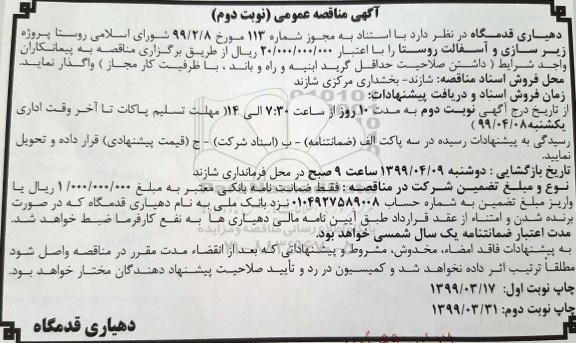 آگهی مناقصه عمومی (نوبت دوم)
دهیاری قدمگاه در نظر دارد با استناد به مجوز شماره ۱۱۳ مورخ ۹۹/۲/۸ شورای اسلامی روستا پروژه
زیر سازی و آسفالت روستا را با اعتبار ۲۰/۰۰۰/۰۰۰/۰۰۰ ریال از طریق برگزاری مناقصه به پیمانکاران
واجد شرایط ( داشتن صلاحیت حداقل گرید ابنیه و راه و باند ، با ظرفیت کار مجاز ) واگذار نماید.
محل فروش اسناد مناقصه: شازند- بخشداری مرکزی شازند
زمان فروش اسناد و دریافت پیشنهادات:
از تاریخ درج آگهی نوبت دوم به مدت ۱۰ روز از ساعت ۷:۳۰ الی ۱۴( مهلت تسلیم پاکات تا آخر وقت اداری
یکشنبه ۹۹/۰۴/۰۸ )
رسیدگی به پیشنهادات رسیده در سه پاکت الف (ضمانتنامه) - ب (اسناد شرکت) - ج (قیمت پیشنهادی) قرار داده و تحویل
نمایید.
تاریخ بازگشایی : دوشنبه ۱۳۹۹/۰۴/۰۹ ساعت ۹ صبح در محل فرمانداری شازند
نوع و مبلغ تضمین شرکت در مناقصه : فقط ضمانت نامه بانکی معتبر به مبلغ ۱/۰۰۰/۰۰۰/۰۰۰ ریال یا
واریز مبلغ تضمین به شماره حساب ۰۱۰۴۹۲۷۵۸۹۰۰۸ نزد بانک ملی به نام دهیاری قدمگاه که در صورت
برنده شدن و امتناع از عقد قرارداد طبق آیین نامه مالی دهیاری ها به نفع کارفرما ضبط خواهد شد.
مدت اعتبار ضمانتنامه یک سال شمسی خواهد بود.
به پیشنهادات فاقد امضاء، مخدوش، مشروط و پیشنهاداتی که بعد از انقضاء مدت مقرر در مناقصه واصل شود
مطلقا ترتیب اثر داده نخواهد شد و کمیسیون در رد و تأیید صلاحیت پیشنهاد دهندگان مختار خواهد بود.
چاپ نوبت اول: ۱۳۹۹/۰۳/۱۷
چاپ نوبت دوم: ۱۳۹۹/۰۳/۳۱
دهیاری قدمگاه